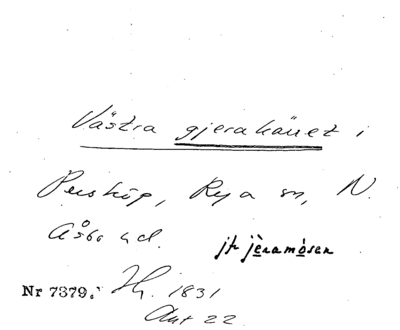 Västra gjerakäret i
Perstorp, Rya sn, N.
Åsbo hd. jfr jèramósen
Nr 7379. Hg. 1831
Akt 22